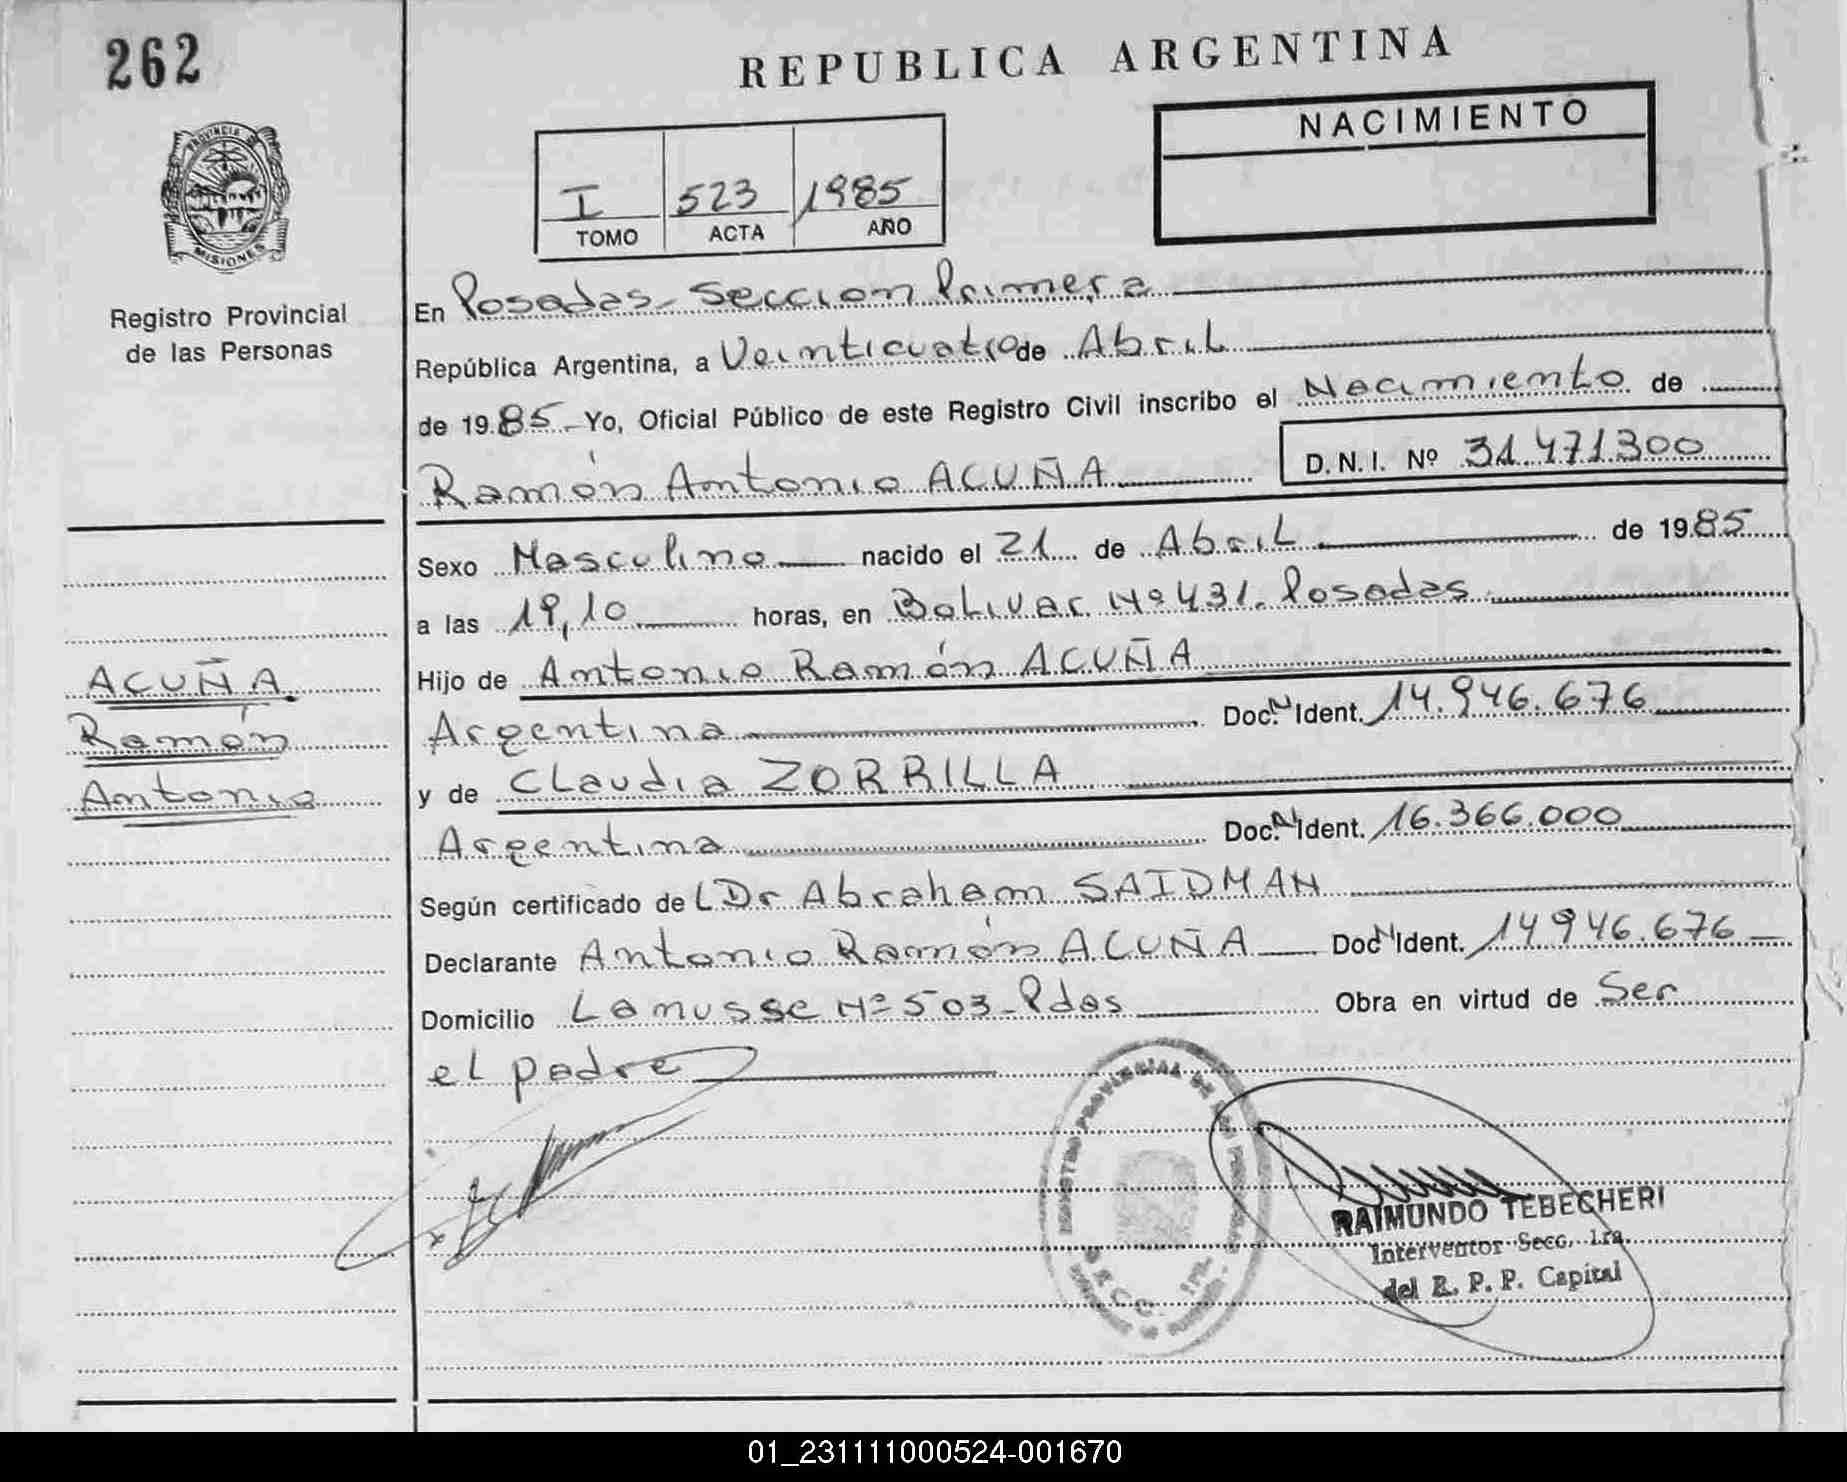 262
REPUBLICA ARGENTINA
NACIMIENTO
I 523 1985
TOMO ACTA AÑO
PROVINCIA DE
MISIONES
Registro Provincial
de las Personas
En Posadas - Seccion Primera
República Argentina, a Veinticuatro de Abril
de 1985 - Yo, Oficial Público de este Registro Civil inscribo el Nacimiento de
Ramón Antonio ACUÑA D.N.I. Nº 31.471.300
Sexo Masculino nacido el 21 de Abril de 1985
a las 19,10 horas, en Bolivar Nº 431. Posadas
Hijo de Antonio Ramón ACUÑA
Argentina Doc. N Ident. 14.946.676
y de Claudia ZORRILLA
Argentina Doc. N Ident. 16.366.000
Según certificado del Dr Abraham SAIDMAN
Declarante Antonio Ramón ACUÑA Doc N Ident. 14946.676
Domicilio Lanusse Nº 503 - Pdas Obra en virtud de Ser
el padre
ACUÑA
Ramón
Antonio
REGISTRO PROVINCIAL DE LAS PERSONAS
RAIMUNDO TEBECHERI
Interventor Secc. 1ra.
del R. P. P. Capital
01_231111000524-001670